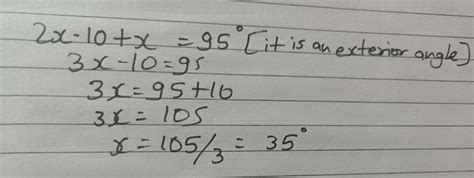 2x-10+x = 95° [it is an exterior angle]
3x-10=95
3x = 95+10
3x = 105
x = 105/3 = 35°